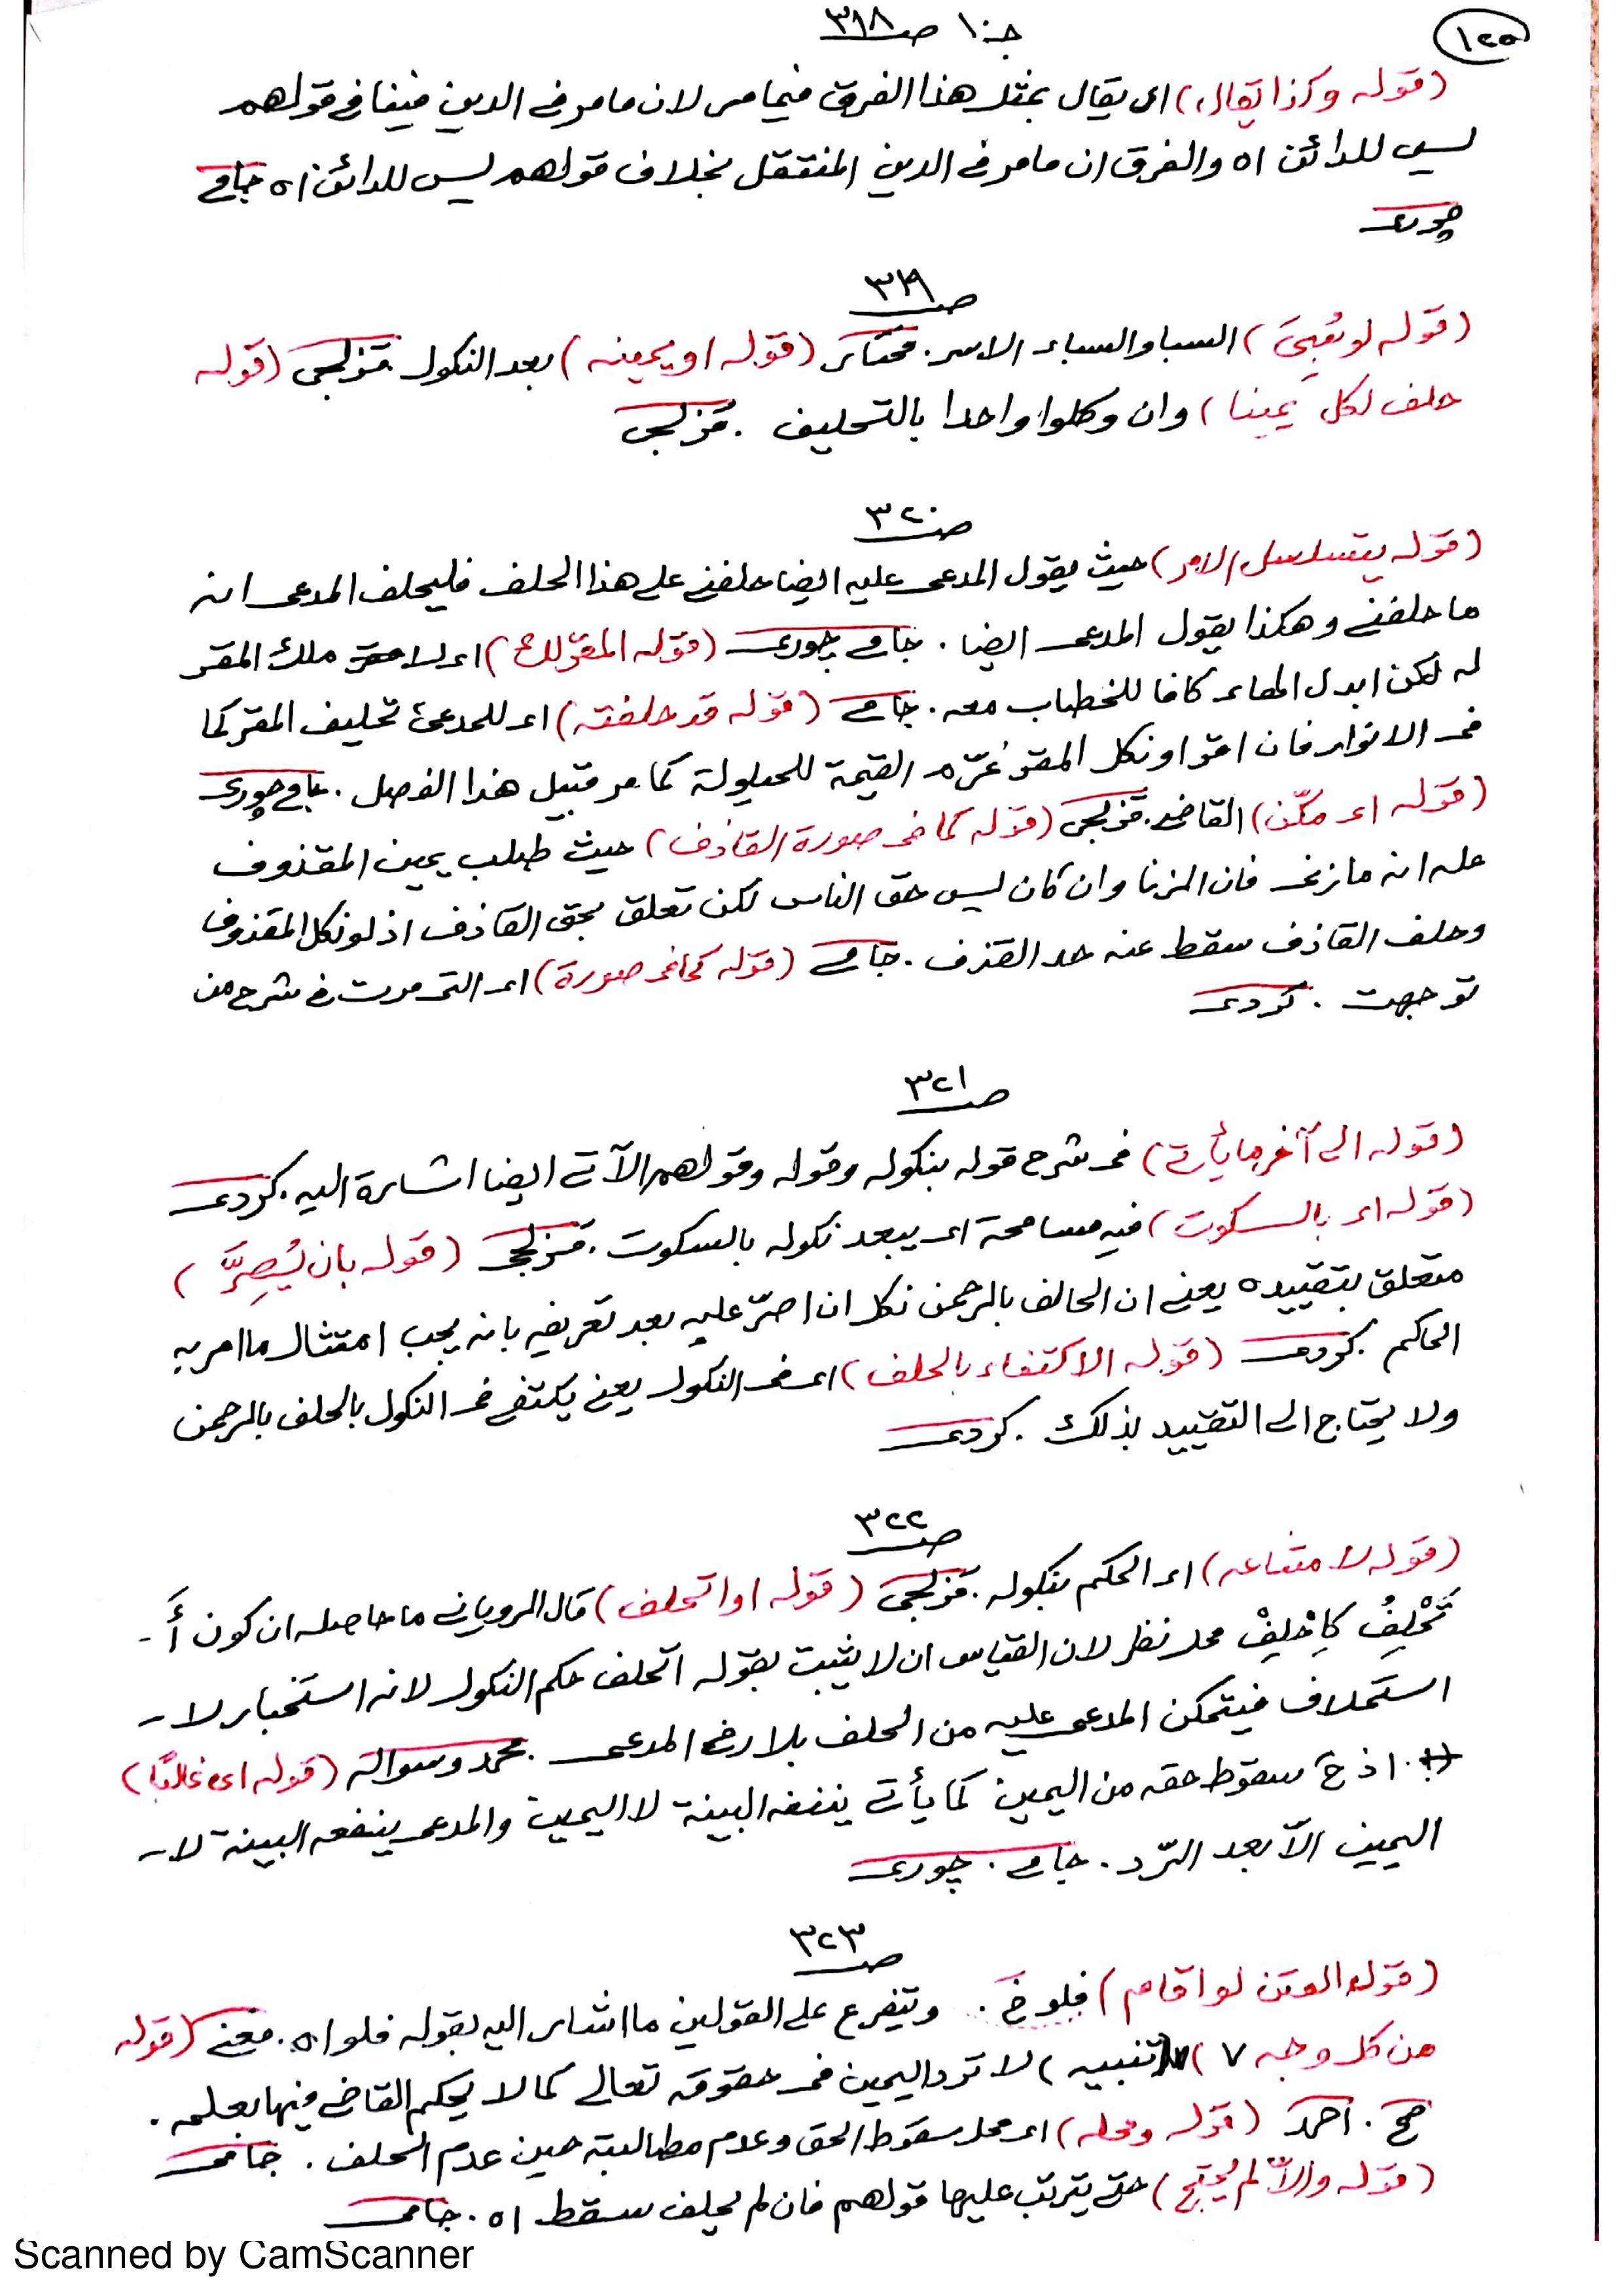 ١٢٥
جـ ١٠ صـ ٣١٨
(قوله وكذا يقال) اى يقال بمثل هذا الفرق فيما مر لان ما مر فى الدين فينافى قولهم
ليس للدائن اه والفرق ان ما مر فى الدين المنتقل بخلاف قولهم ليس للدائن اه جامى
چورى
صـ ٣١٩
(قوله لو سُبِىَ) السبا والسباء الاسر. مختار (قوله او يمينه) بعد النكول قزلجى (قوله
حلف لكل يمينا) وان وكلوا واحدا بالتحليف . قزلجى
صـ ٣٢٠
(قوله يتسلسل الامر) حيث يقول المدعى عليه ايضا حلفنى على هذا الحلف فليحلف المدعى انه
ما حلفنى وهكذا يقول المدعى ايضا . جامى چورى (قوله المقر لك) اى ملك المقر
له لكن ابدل الهاء كافا للخطاب معه . جامى (قوله قد حلفته) اى للمدعى تحليف المقر كما
فى الانوار فان اقر او نكل المقر غرّم القيمة للحيلولة كما مر قبيل هذا الفصل . جامى چورى
(قوله اى مكّن) القاضى. قزلجى (قوله كما فى صورة القاذف) حيث طلب يمين المقذوف
على انه ما زنى فان الزنا وان كان ليس حق الناس لكن تعلق بحق القاذف اذ لو نكل المقذوف
وحلف القاذف سقط عنه حد القذف . جامى (قوله كما فى صورة) اى التى مرت فى شرح من
توجهت . كردى
صـ ٣٢١
(قوله الى آخر ما يأتى) فى شرح قوله بنكوله وقوله وقولهم الآتى ايضا اشارة اليه . كردى
(قوله اى بالسكوت) فيه مسامحة اى يبعد نكوله بالسكوت . قزلجى (قوله بان يُصِرَّ)
متعلق بتقييده يعنى ان الحالف بالرحمن نكل ان اصرّ عليه بعد تعريفه بانه يجب امتثال ما امر به
الحاكم . كردى (قوله الاكتفاء بالحلف) اى فى النكول يعنى يكتفى فى النكول بالحلف بالرحمن
ولا يحتاج الى التقييد بذلك . كردى
صـ ٣٢٢
(قوله لامتناعه) اى الحكم بنكوله . قزلجى (قوله او اتحلف) قال الرويانى ما حاصله ان كون أَ-
تَحْلِفُ كاِحْلِفْ محل نظر لان القياس ان لا يثبت بقوله اتحلف حكم النكول لانه استخبار لا -
استحلاف فيتمكن المدعى عليه من الحلف بلا رضى المدعى . محمد وسوالة (قوله اى غالبًا)
اذ ح سقوط حقه من اليمين كما يأتى ينفعه البينة لا اليمين والمدعى ينفعه البينة لا -
اليمين الّا بعد الرّد . جامى . چورى
صـ ٣٢٣
(قوله لو اقام) فلو خ . ويتفرع على القولين ما اشار اليه بقوله فلو اه . مغنى (قوله
من كل وجه ٧) (تنبيه) لا ترد اليمين فى حقوقه تعالى كما لا يحكم القاضى فيها بعلمه .
صح . احمد (قوله ومحله) اى محل سقوط الحق وعدم مطالبته حين عدم الحلف . جامى
(قوله والّا لم يُحْتَج) حتى يترتب عليها قولهم فان لم يحلف سقط اه . جامى
Scanned by CamScanner